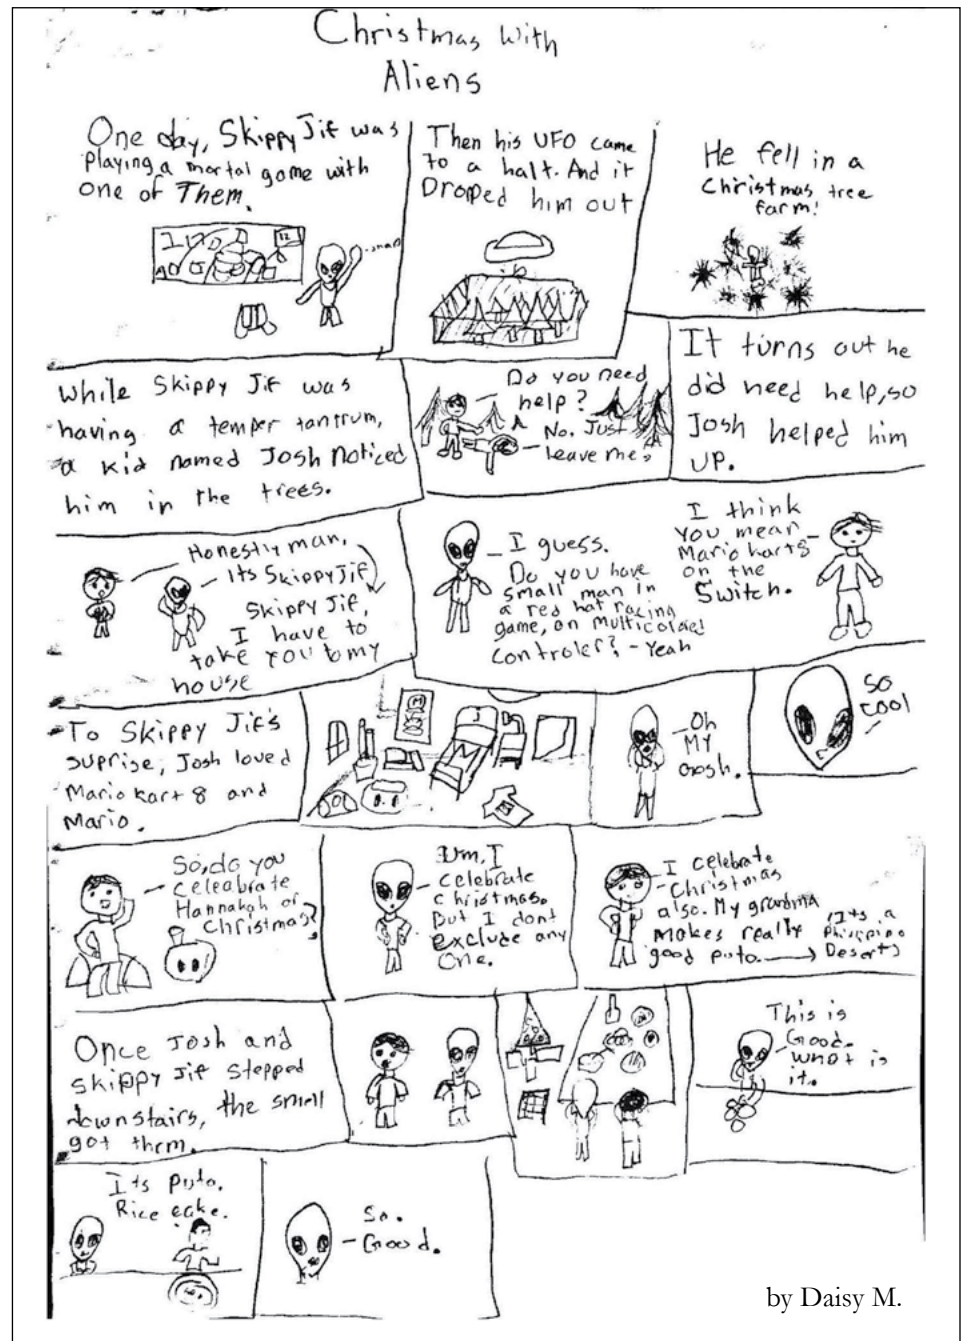 Christmas With
Aliens
One day, Skippy Jif was
Playing a mortal game with
one of Them.
Then his UFO came
to a halt. And it
Dropped him out
He fell in a
Christmas tree
farm!
While Skippy Jif was
having a temper tantrum,
a kid named Josh noticed
him in the trees.
Do you need
help?
No. Just
leave me.
It turns out he
did need help, so
Josh helped him
UP.
Honestly man,
Its Skippy Jif
Skippy Jif,
I have to
take you to my
house
I guess.
Do you have
small man in
a red hat racing
game, on multicolored
controler? - Yeah
I think
you mean
Mario karts
on the
Switch.
To Skippy Jif's
suprise, Josh loved
Mario kart 8 and
Mario.
Oh
MY
Gosh.
SO
COOL
So, do you
celeabrate
Hannakah or
Christmas?
Um, I
celebrate
christmas.
But I dont
exclude any
one.
I celebrate
Christmas
also. My grandma
makes really
good puto.
(Its a
Desert)
Once Josh and
Skippy Jif stepped
downstairs, the smell
got them.
This is
Good.
what is
it.
Its Puto.
Rice cake.
So.
Good.
by Daisy M.